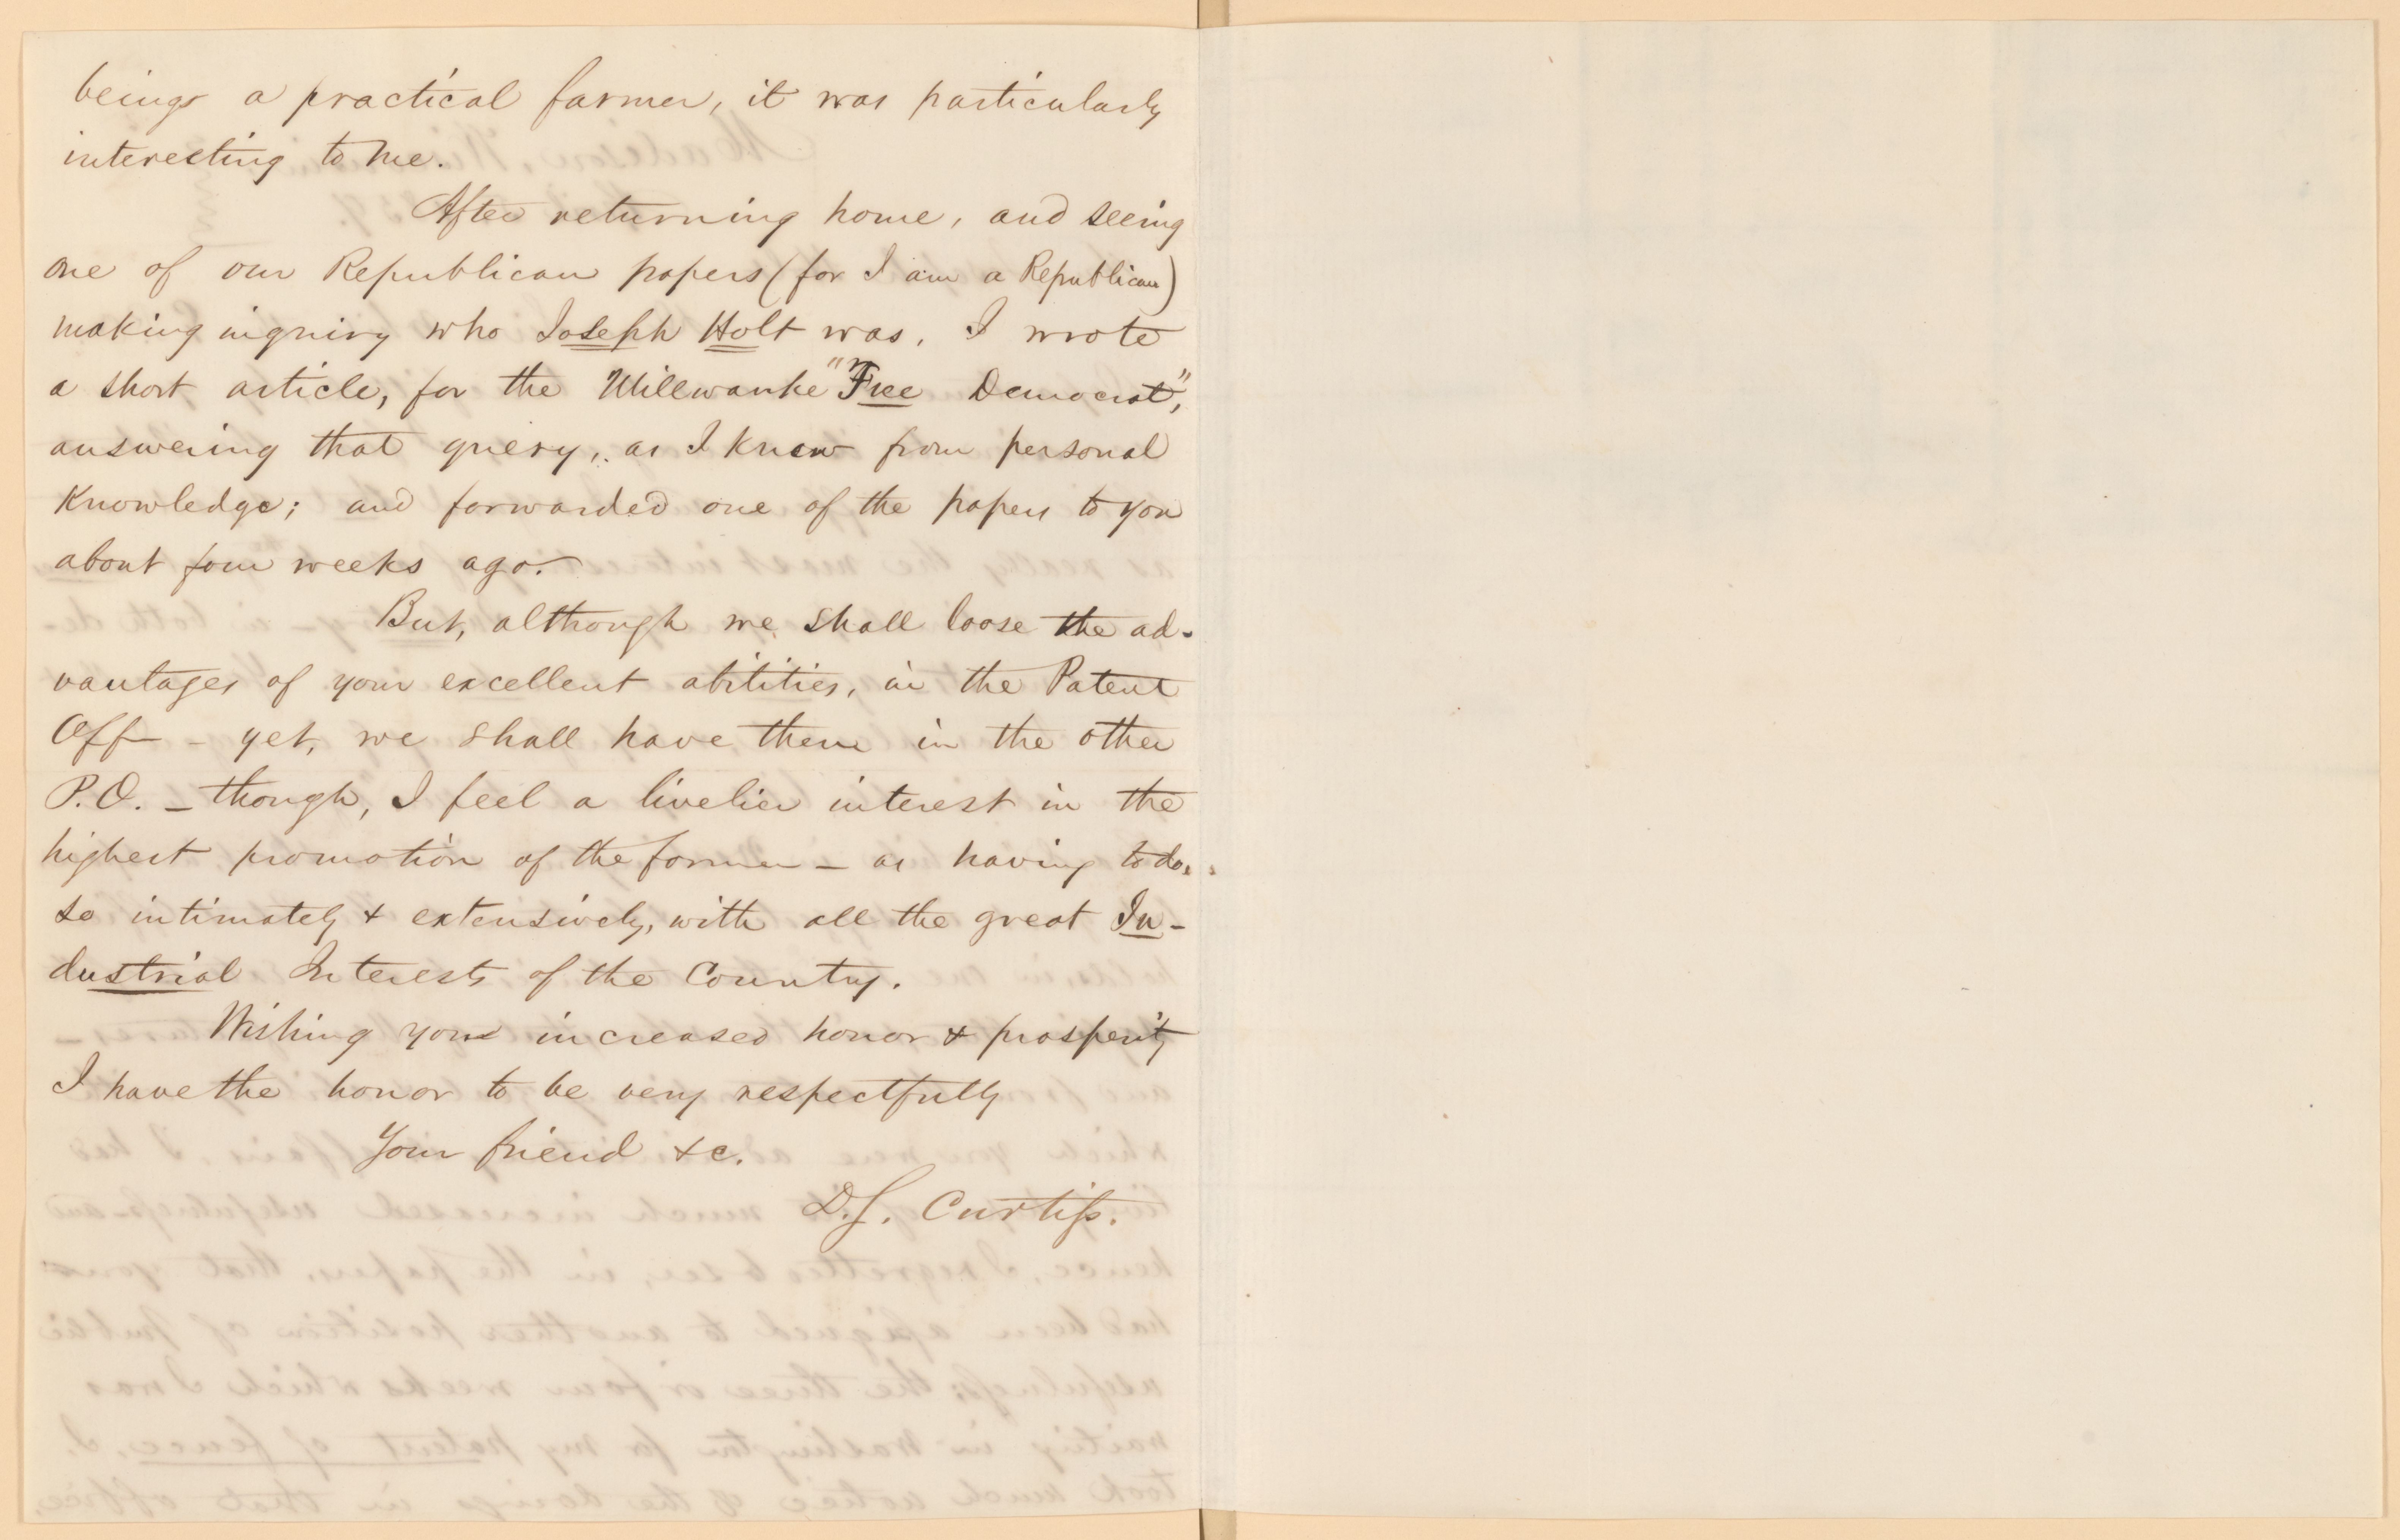 being a practical farmer, it was particularly
interesting to me.
After returning home, and seeing
one of our Republican papers (for I am a Republican)
making inquiry who Joseph Holt was, I wrote
a short article, for the Millwaukee "Free Democrat",
answering that query, as I knew from personal
Knowledge; and forwarded one of the papers to you
about four weeks ago.
But, although we shall loose the ad-
vantages of your excellent abilities, in the Patent
Off - yet, we shall have them in the other
P.O. - though, I feel a livelier interest in the
highest promotion of the former - as having to do,
so intimately & extensively, with all the great In-
dustrial Interests of the Country.
Wishing you increased honor & prosperity
I have the honor to be very respectfully
Your friend &c.
D.S. Curtiss.